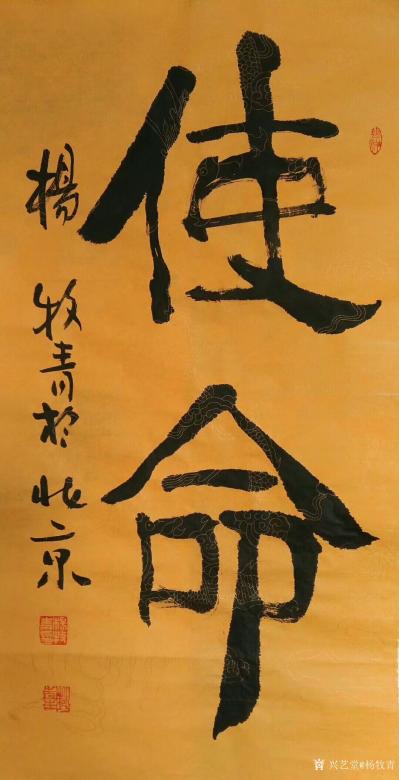 使命
楊牧青於北京
兴艺堂@杨牧青